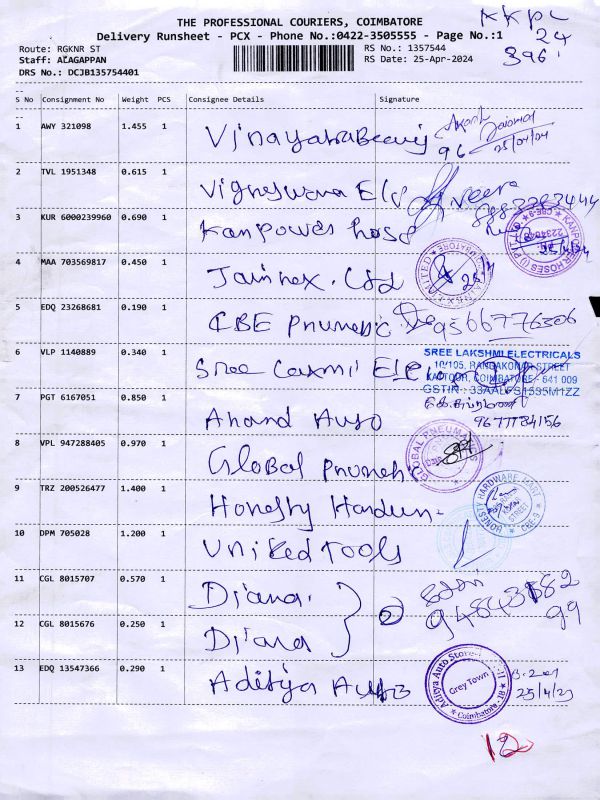 THE PROFESSIONAL COURIERS, COIMBATORE
Delivery Runsheet - PCX - Phone No.:0422-3505555 - Page No.:1
KKPL
24
396
Route: RGKNR ST
RS No.: 1357544
Staff: ALAGAPPAN
RS Date: 25-Apr-2024
DRS No.: DCJB135754401
S No Consignment No Weight PCS Consignee Details Signature
1 AWY 321098 1.455 1 Vinayaka
25/04/24
2 TVL 1951348 0.615 1 Vigneswara
3 KUR 6000239960 0.690 1 Kanpower hose
4 MAA 703569817 0.450 1 Jainex. Ltd
5 EDQ 23268681 0.190 1 CBE Pnumetic 9566776306
6 VLP 1140889 0.340 1 Sree Laxmi Ele
SREE LAKSHMI ELECTRICALS
10/105, RANGAKONAR STREET
KATTOOR, COIMBATORE - 641 009
GSTIN : 33AALFS1535M1ZZ
7 PGT 6167051 0.850 1 Anand Auto 9677784156
8 VPL 947288405 0.970 1 Global Pnumeh
GLOBAL PNEUMA
9 TRZ 200526477 1.400 1 Honesty Hardun.
HONESTY HARDWARE MART
CBE-9
10 DPM 705028 1.200 1 United Tools
11 CGL 8015707 0.570 1 Diana.
2
12 CGL 8015676 0.250 1 Diana
99
13 EDQ 13547366 0.290 1 Aditya Auto
Aditya Auto Store-II
Grey Town
Coimbatore
12